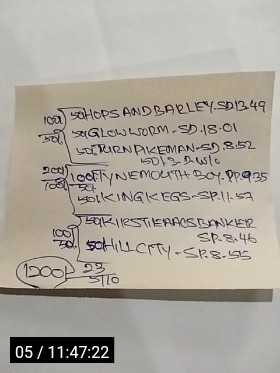 100/ 50/ HOPS AND BARLEY. SD.13.49
50/ 50/ GLOWWORM - SD.18.01
50/ TURNPIKEMAN - SD.8.52
200/ 100/ TYNEMOUTH BOY. PP.9.35
100/ 50/ KINGKEGS - SP.11.57
50/ KIRSTIE AAOS BANKER
100/ SP.8.46
50/ 50/ HILL CITY - SP.8.55
1200/
05 / 11:47:22